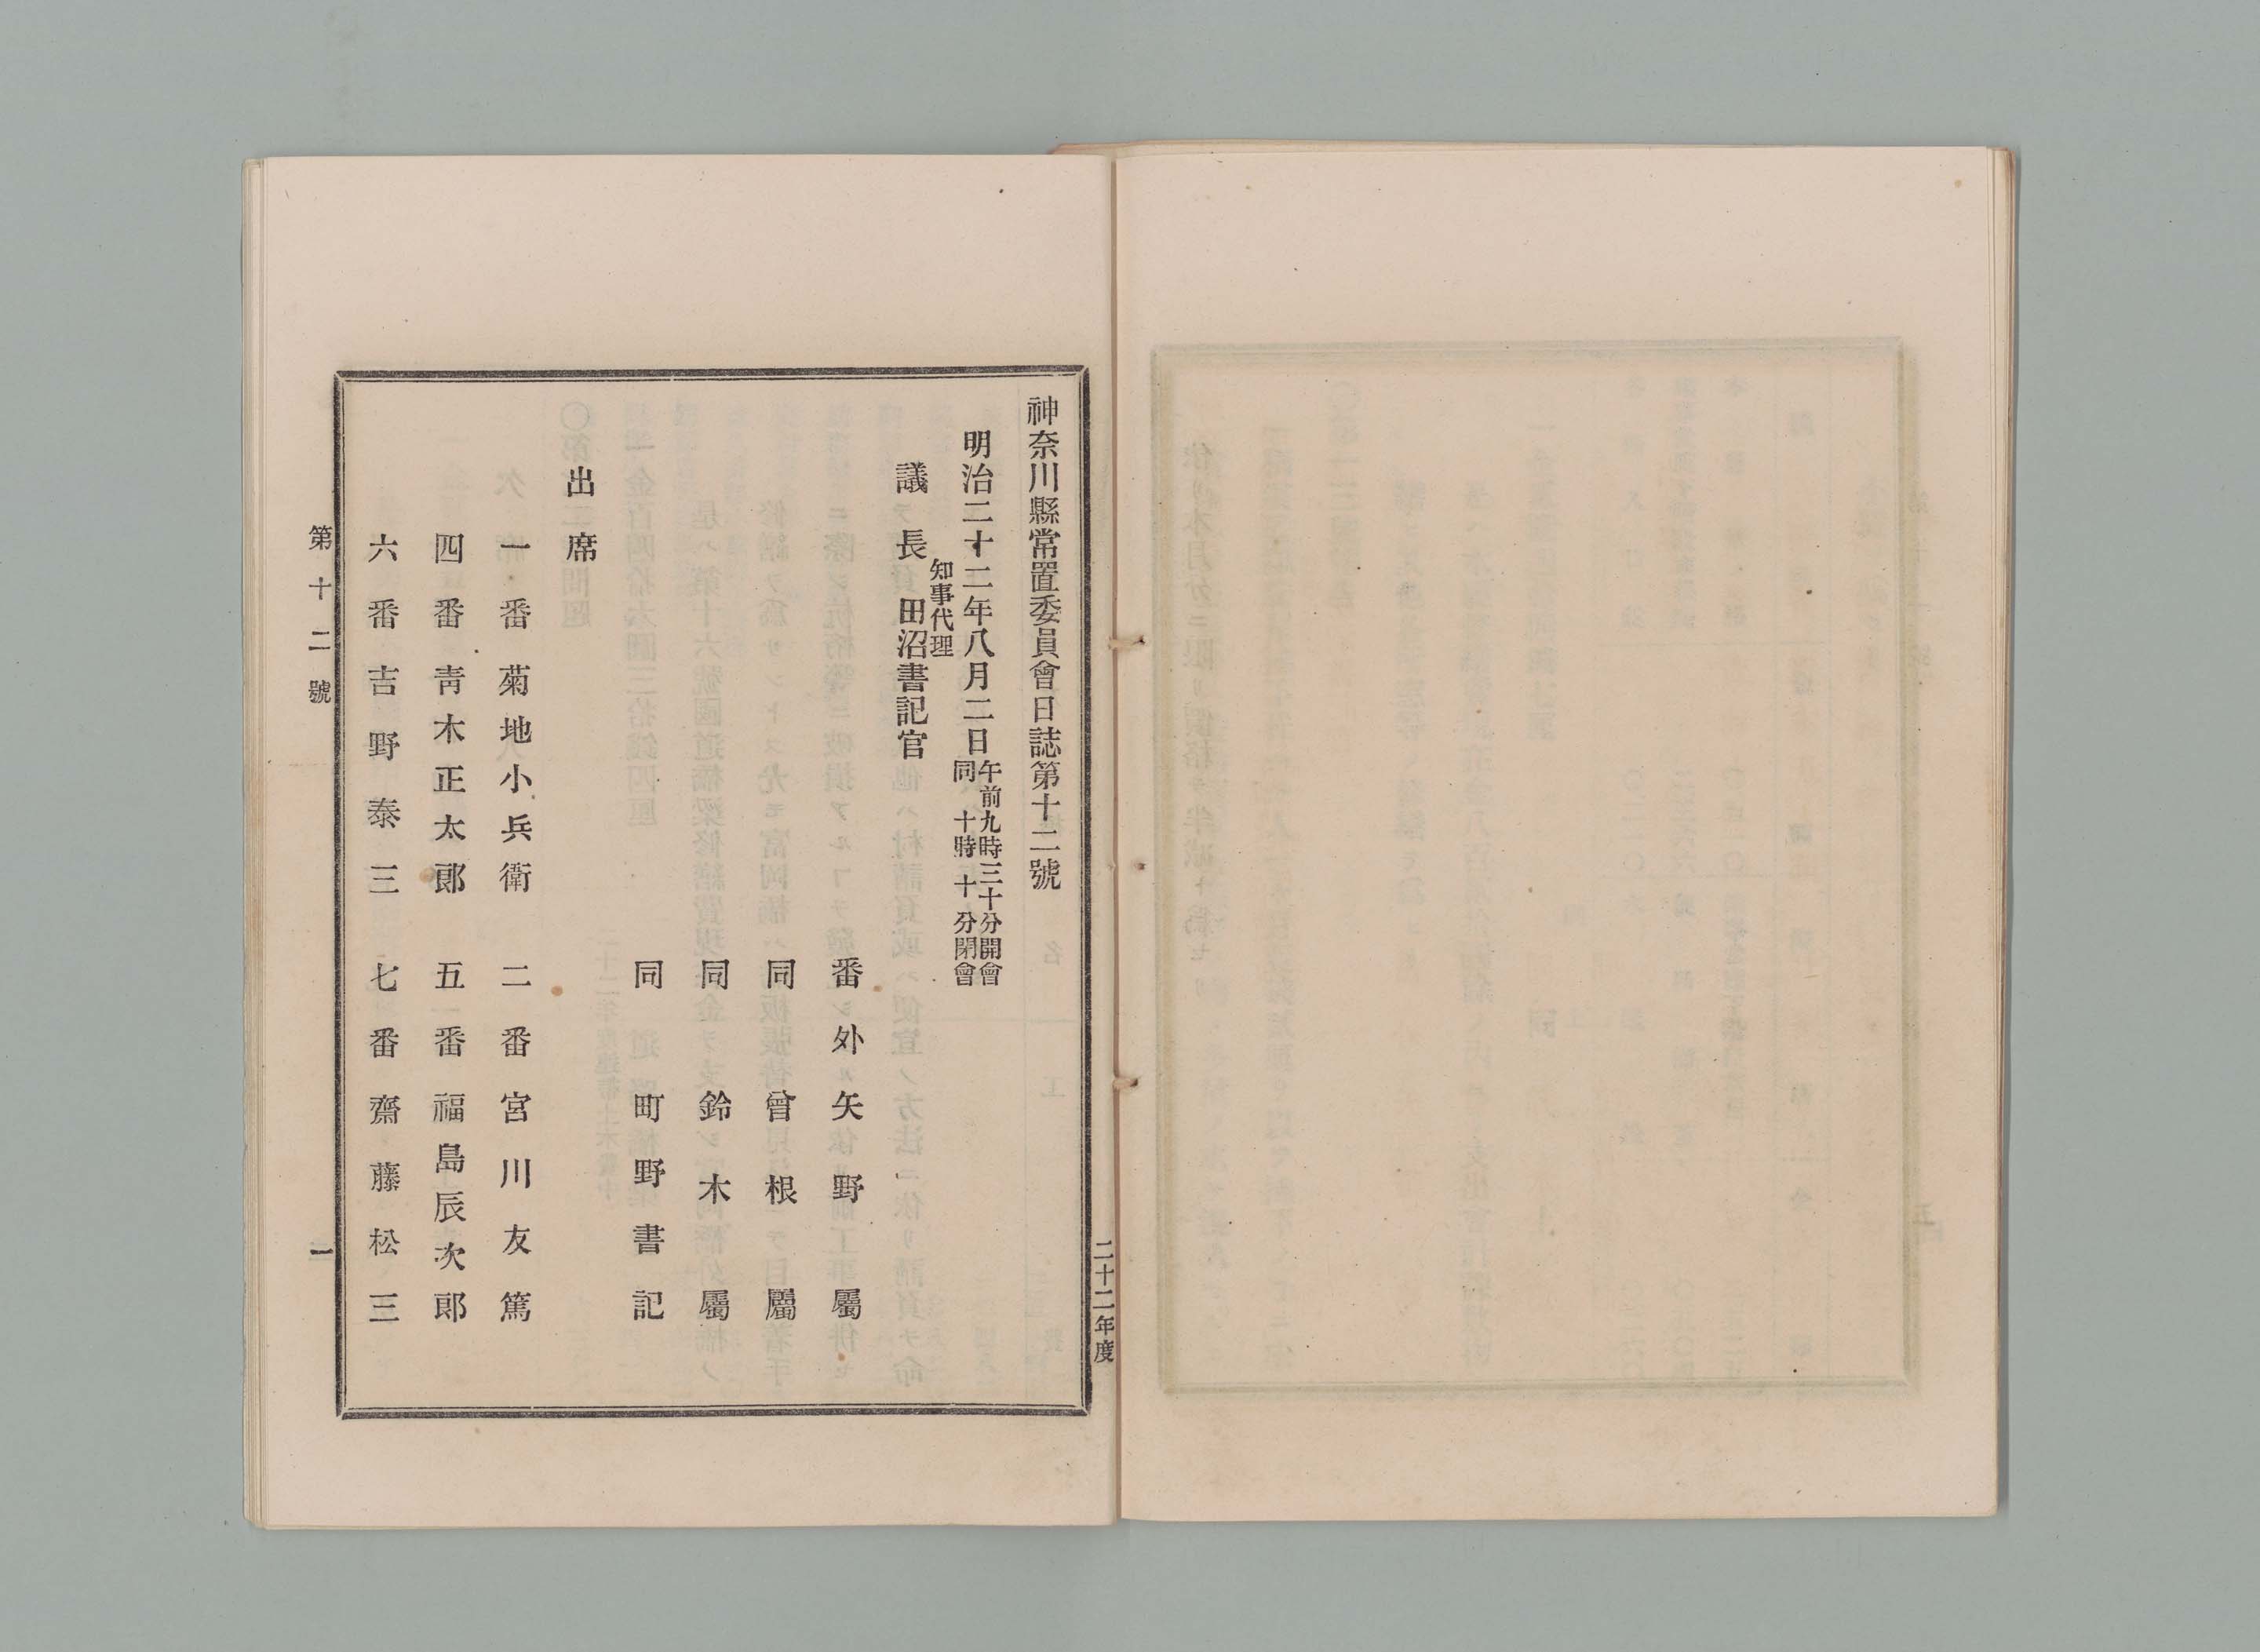 神奈川縣常置委員會日誌第十二號
明治二十二年八月二日
午前九時三十分開會
同十時十分閉會
知事代理
議長 田沼書記官
番外 矢野屬
同 曾根屬
同 鈴木屬
同 町野書記
出席
一番 菊地小兵衛 二番 宮川友篤
四番 靑木正太郎 五番 福島辰次郎
六番 吉野泰三 七番 齋藤松三
二十二年度
第十二號
一